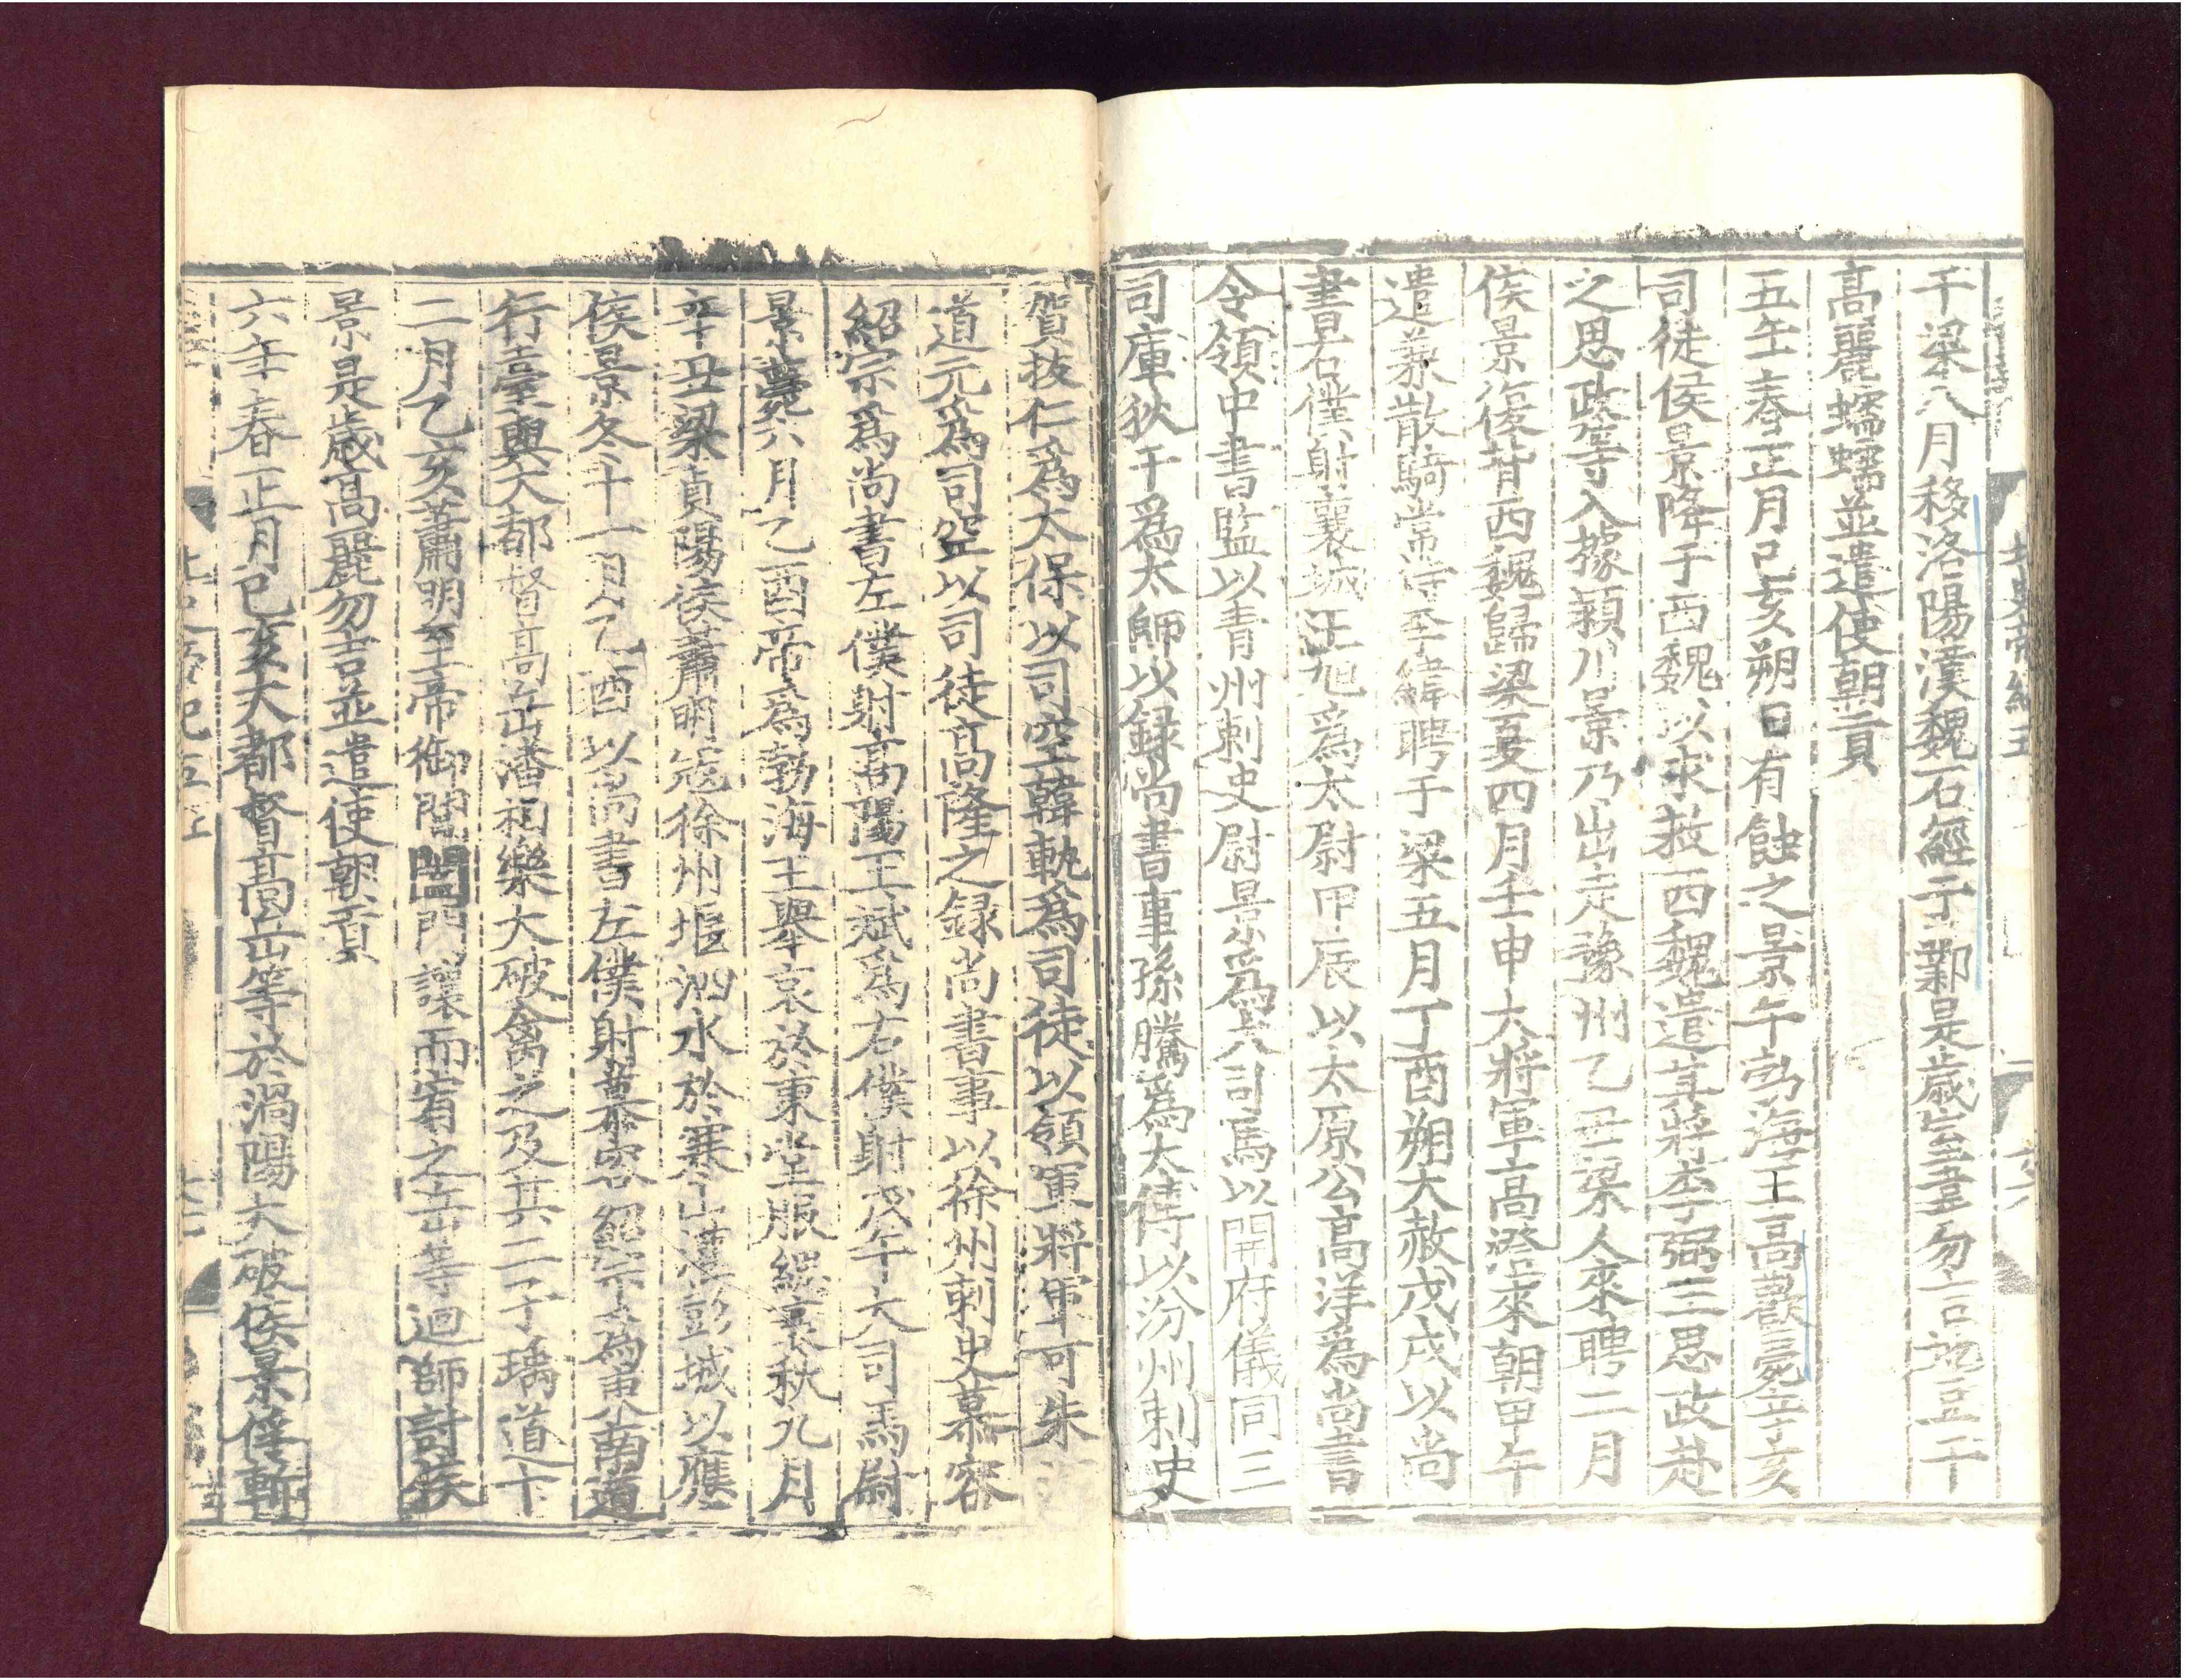 于梁八月移洛陽漢魏石經于鄴是歲室韋勿吉地豆干
高麗蠕蠕並遣使朝貢
五年春正月己亥朔日有蝕之景午勃海王高歡薨辛亥
司徒侯景降于西魏以求救西魏遣其將李弼王思政赴
之思政等入據潁川景乃出走豫州乙丑梁人來聘二月
侯景復背西魏歸梁夏四月壬申大將軍高澄來朝甲午
遣兼散騎常侍李緯聘于梁五月丁酉朔大赦戊戌以尚
書右僕射襄城王旭爲太尉甲辰以太原公高洋爲尚書
令領中書監以青州刺史尉景爲大司馬以開府儀同三
司庫狄干爲太師以録尚書事孫騰爲太傅以汾州刺史
賀拔仁爲太保以司空韓軌爲司徒以領軍將軍可朱
道元爲司空以司徒高隆之録尚書事以徐州刺史慕容
紹宗爲尚書左僕射高陽王斌爲右僕射戊午大司馬尉
景薨六月乙酉帝爲勃海王舉哀於東堂服緦縗秋九月
辛丑梁貞陽侯蕭明寇徐州堰泗水於寒山灌彭城以應
侯景冬十一月乙酉以尚書左僕射慕容紹宗爲東南道
行臺與大都督高岳潘相樂大破禽之及其二子瑀道十
二月乙亥蕭明至帝御閶闔門讓而宥之岳等迴師討侯
景是歲高麗勿吉並遣使朝貢
六年春正月己亥大都督高岳等於渦陽大破侯景俘斬